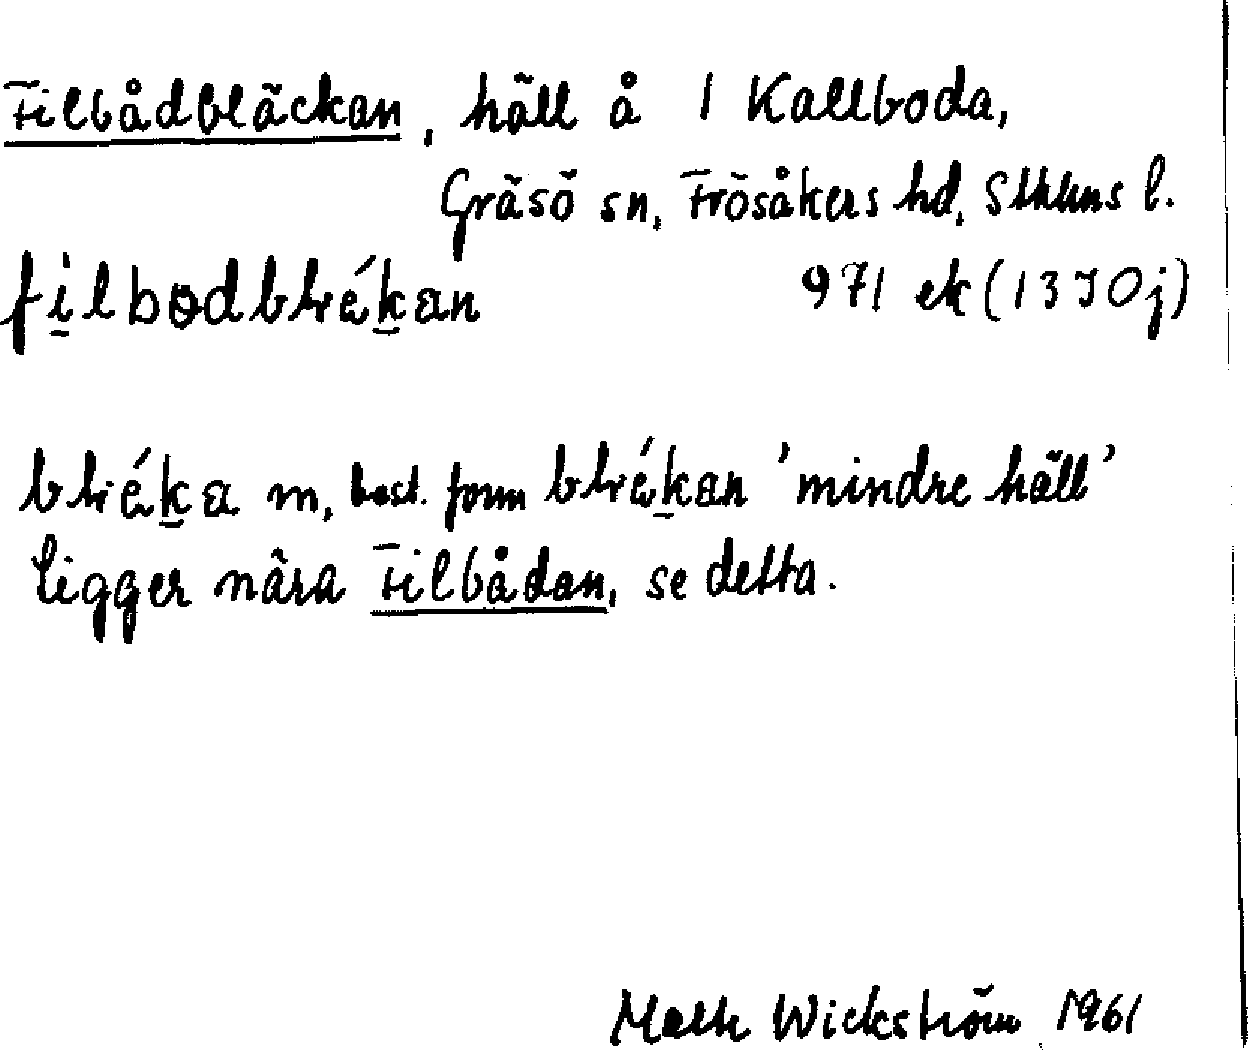 Filbådbläckan, häll å 1 Kallboda,
Gräsö sn, Frösåkers hd, Sthlms l.
971 ek (13 I 0 j)
m, best. form 'mindre häll'
ligger nära Filbådan, se detta.
Wickström 1961